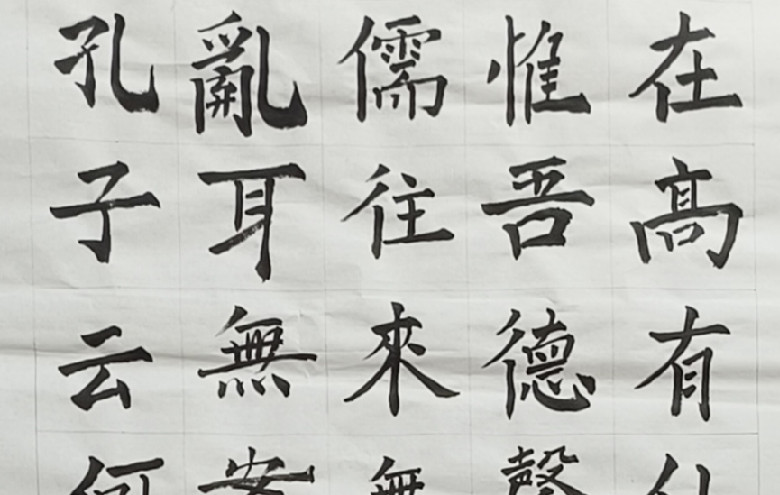 在高有
惟吾德
儒往來無
亂耳無
孔子云何